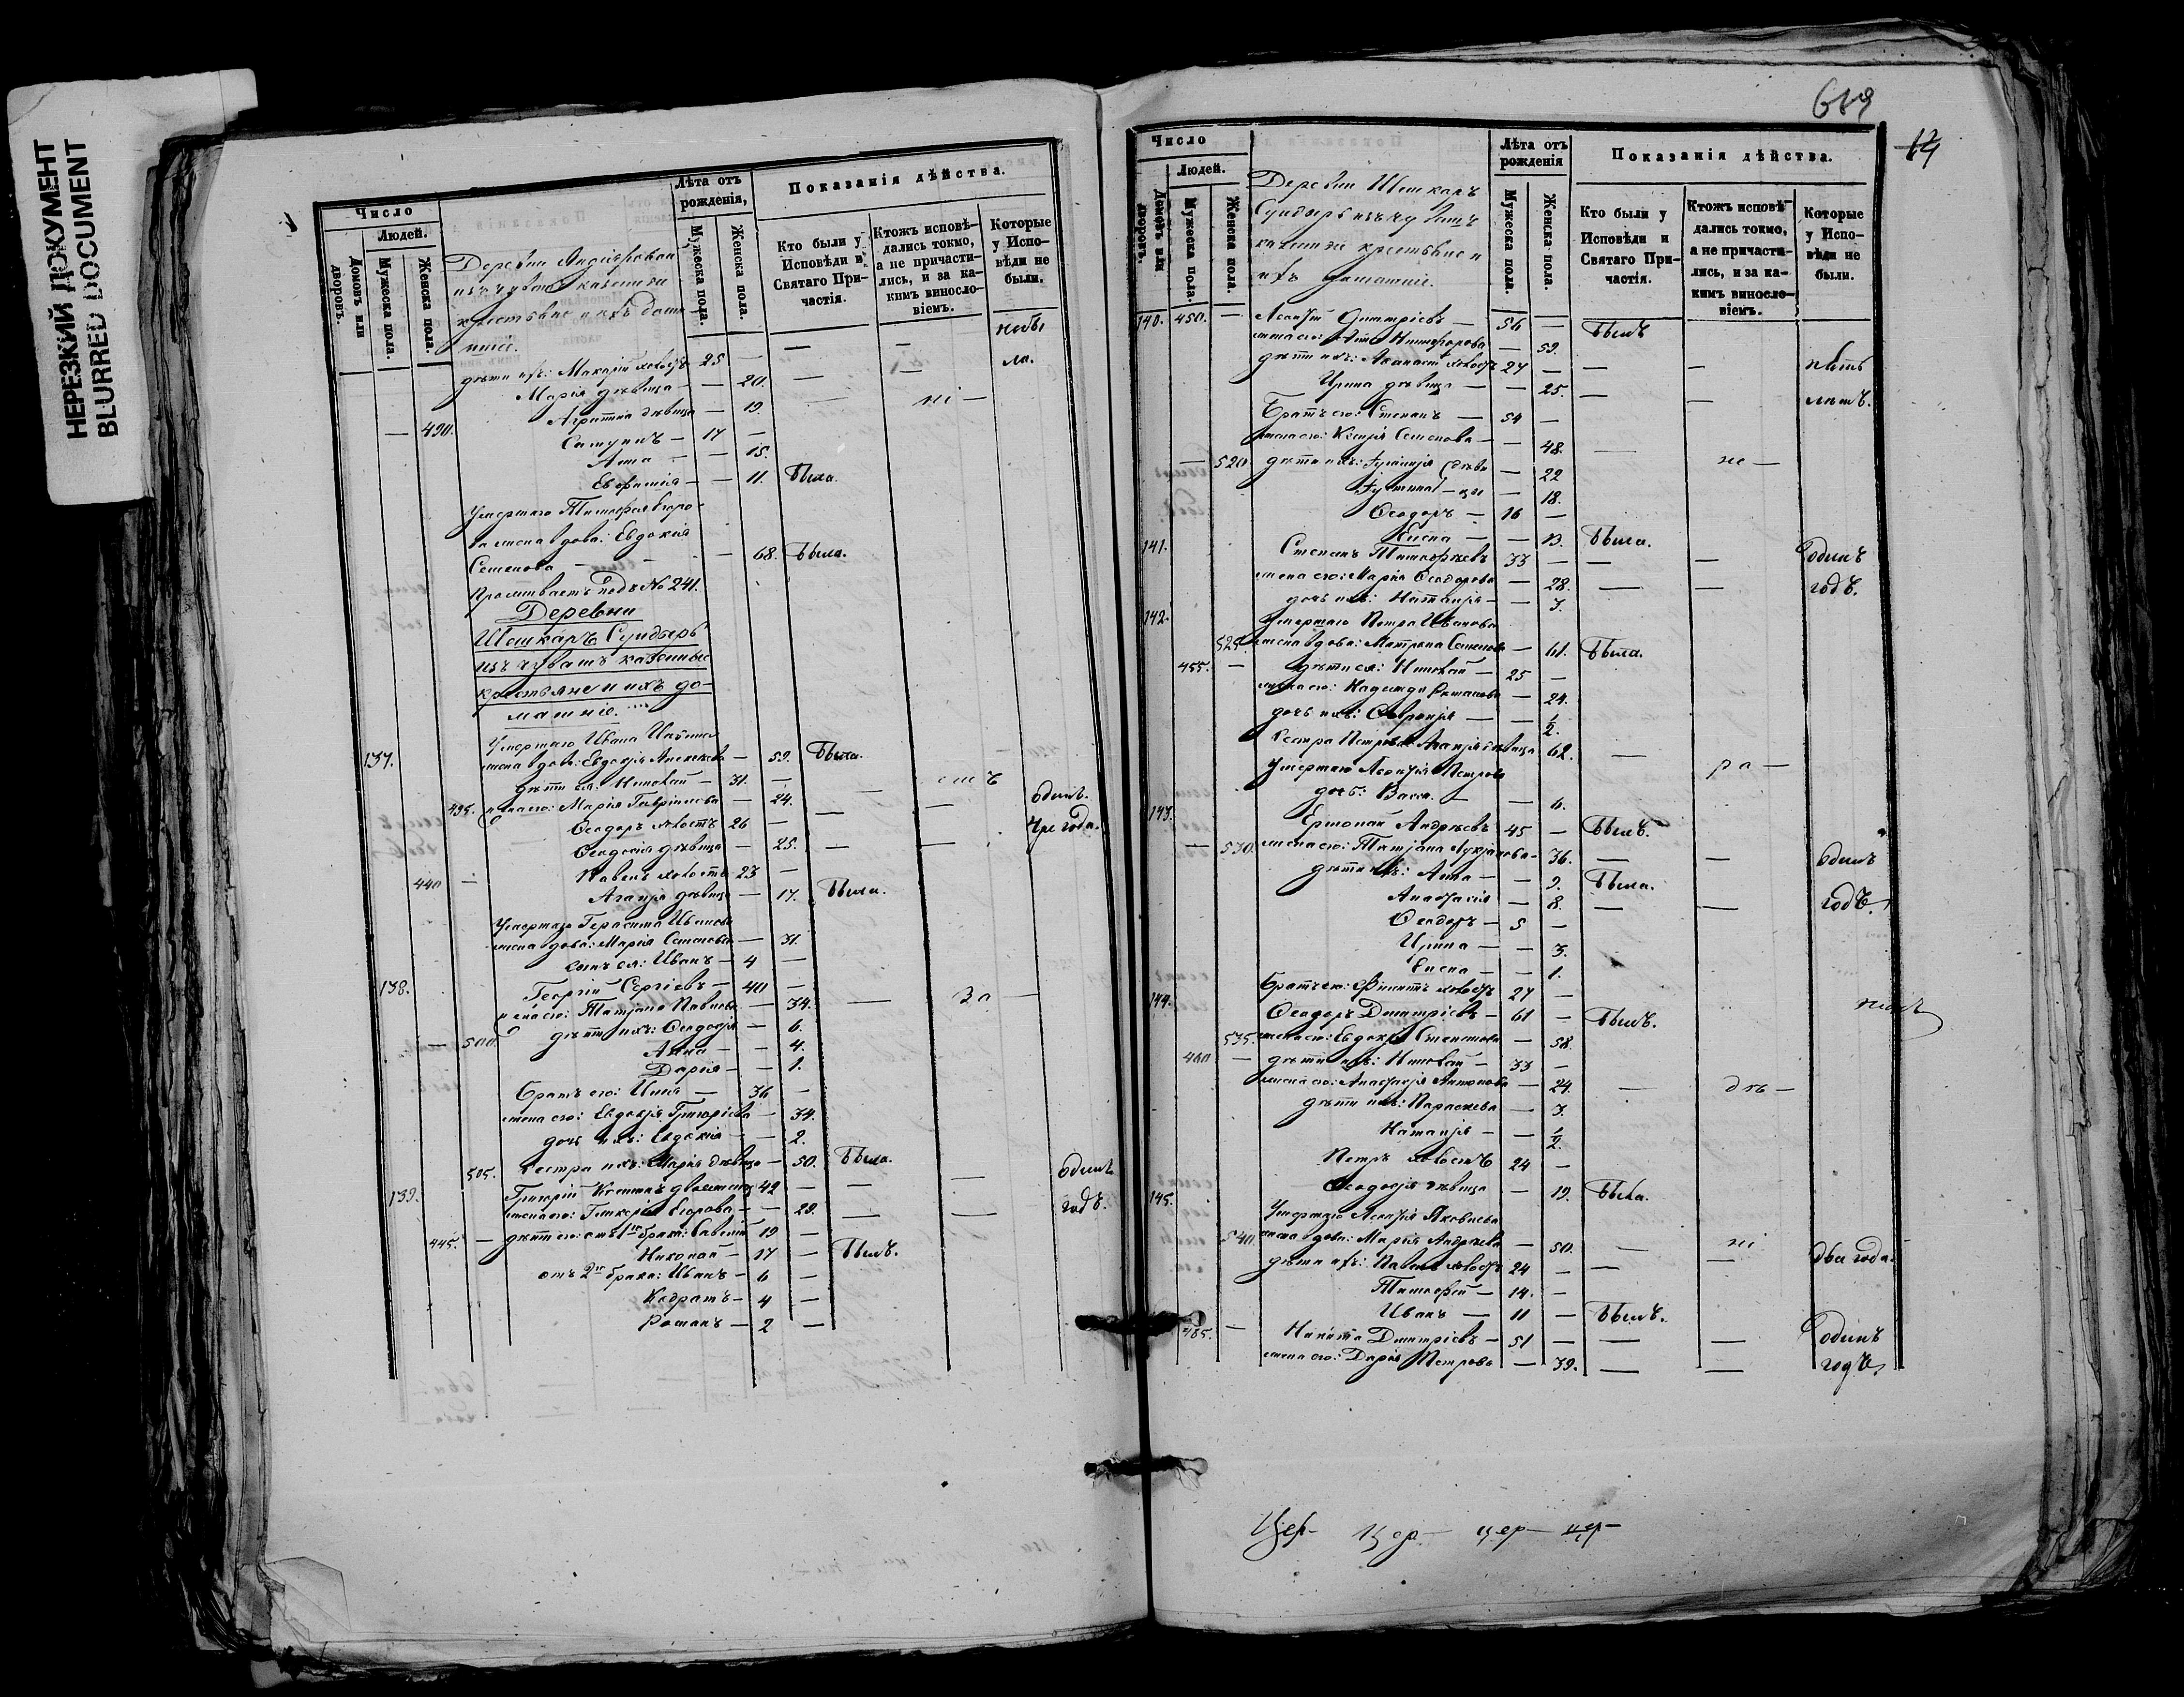 НЕРЕЗКИЙ ДОКУМЕНТ
BLURRED DOCUMENT
Число
Людей.
Домовъ или дворовъ.
Мужеска пола.
Женска пола.
Лѣта отъ рожденія,
Мужеска пола.
Женска пола.
Показанія дѣйства.
Кто были у Исповѣди и Святаго Причастія.
Ктожъ исповѣдались токмо, а не причастились, и за какимъ винословіемъ.
Которые у Исповѣди не были.
Деревни
изъ чувашъ казенные
крестьяне и ихъ дома-
шніе.
дѣти ихъ: Макарій холостъ 25 —
Марія дѣвица — 20.
Агрипина дѣвица — 19.
— 490.
17 —
Анна — 15.
Евфимія — 11. Была.
Умершаго Тимофея Егоро-
ва жена вдова: Евдокія
Семенова — 68. Была.
Проживаетъ подъ № 241.
Деревни
Шешкаръ Сундырь
изъ чувашъ казенные
крестьяне и ихъ до-
машніе.
Умершаго Ивана
137. жена вдова: Евдокія Алексеева — 59. Была.
дѣти ея: Николай — 31. —
495. жена его: Марія Гаврилова — 24. одинъ
Ѳеодоръ холостъ 26 — три года.
Ѳеодосія дѣвица — 25.
440 — Павелъ холостъ 23 —
Агапія дѣвица — 17. Была.
Умершаго Герасима Иванова
жена вдова: Марія Семенова — 31.
сынъ ея: Иванъ — 4 —
138. Георгій Сергіевъ — 40 —
жена его: Татіана Павлова — 34. за
дѣти ихъ: Ѳеодосія — 6.
— 500. Анна — 4.
Дарія — 1.
Братъ его: Илія — 36 —
жена его: Евдокія Григоріева — 34.
дочь ихъ: Евдокія — 2.
505. Сестра ихъ: Марія дѣвица — 50. Была.
139. Григорій 42 — одинъ
жена его: Егорова — 29. годъ.
445. — дѣти его: отъ 1го брака: Савелій 19 —
Николай — 17 — Былъ.
отъ 2го брака: Иванъ — 6 —
Кодратъ — 4 —
Романъ — 2 —
619
14
Число
Людей.
Домовъ или дворовъ.
Мужеска пола.
Женска пола.
Лѣта отъ рожденія
Мужеска пола.
Женска пола.
Показанія дѣйства.
Кто были у Исповѣди и Святаго Причастія.
Ктожъ исповѣдались токмо, а не причастились, и за какимъ винословіемъ.
Которые у Исповѣди не были.
Деревни Шешкаръ
Сундырь изъ чувашъ
казенные крестьяне и
ихъ домашніе.
140. 450. — Димитріевъ — 56 — Былъ
жена его: Анна Никифорова — 59.
дѣти ихъ: холостъ 27 — пять
Ирина дѣвица — 25. лѣтъ.
Братъ его: Степанъ — 54 —
жена его: Ксенія Семенова — 48.
— 520. дѣти ихъ: — 22 не —
— 18.
Ѳеодоръ — 16 —
— 13. Была.
141. Степанъ Тимофѣевъ 33 — одинъ
жена его: Марія Ѳеодорова — 28. годъ.
дочь ихъ: Наталія — 3.
142. Умершаго Петра Иванова
525. жена вдова: Матрона Семенова — 61. Была.
455. — дѣти ея: Николай — 25 —
жена его: Надежда Романова — 24.
дочь ихъ: Февронія — 1/2.
Сестра Петрова: Агапія дѣвица 62. ра —
Умершаго Петрова
дочь: Васса — 6.
143. Ермолай Андреевъ 45 — Былъ.
— 530. жена его: Татіана Лукіанова — 36. одинъ
дѣти ихъ: Анна — 9. Была.
Анастасія — 8. годъ.
Ѳеодоръ — 5 —
Ирина — 3.
Елена — 1.
Братъ его: Филиппъ холостъ 27 —
144. Ѳеодоръ Димитріевъ — 61 — Былъ.
535. жена его: Евдокія Степанова — 58.
460 — дѣти ихъ: Николай — 33 —
жена его: Анастасія Антонова — 24. дѣ —
дѣти ихъ: Параскева — 3.
Наталія — 1/2.
Петръ холостъ 24 —
Ѳеодосія дѣвица — 19. Была.
145. Умершаго Яковлева
540. жена вдова: Марія Андреева — 50. ні
дѣти ихъ: Павелъ холостъ 24 — два года.
Тимофей — 14. —
Иванъ — 11 — Былъ.
465. — Никита Димитріевъ — 51 — одинъ
жена его: Дарія Петрова — 39. годъ.
Цер- Цер- цер- цер-